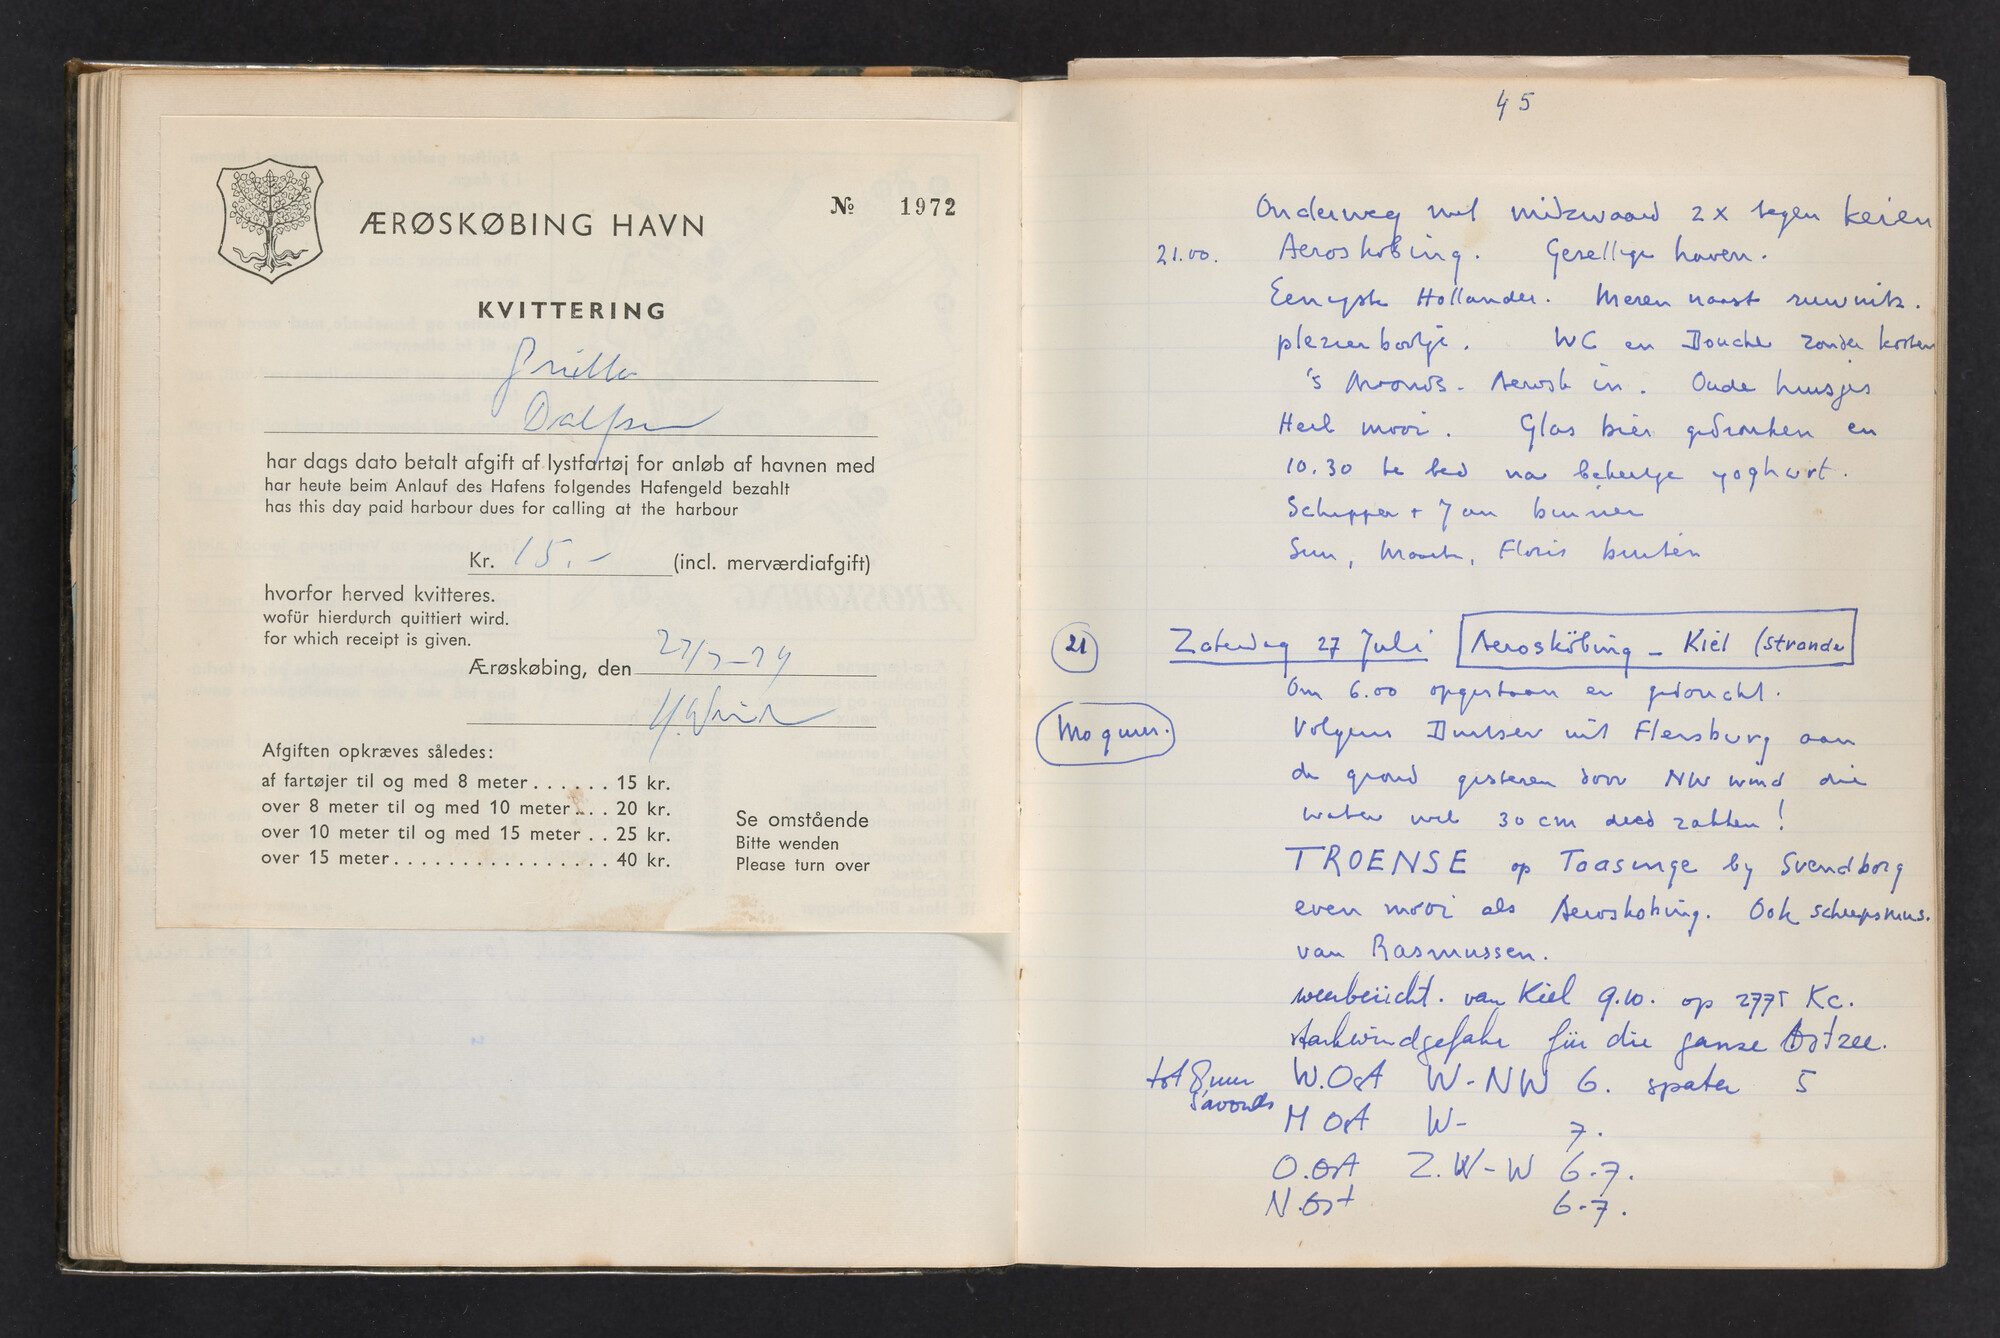 ÆRØSKØBING HAVN
№ 1972
KVITTERING
har dags dato betalt afgift af lystfartøj for anløb af havnen med
har heute beim Anlauf des Hafens folgendes Hafengeld bezahlt
has this day paid harbour dues for calling at the harbour
Kr. 15.- (incl. merværdiafgift)
hvorfor herved kvitteres.
wofür hierdurch quittiert wird.
for which receipt is given.
Ærøskøbing, den 27/7-74
Afgiften opkræves således:
af fartøjer til og med 8 meter . . . . . . 15 kr.
over 8 meter til og med 10 meter . . . 20 kr.
over 10 meter til og med 15 meter . . 25 kr.
over 15 meter . . . . . . . . . . . . . . . . 40 kr.
Se omstående
Bitte wenden
Please turn over
45
Onderweg met midzwaard 2 x tegen keien
21.00. Aeroskobing. Gezellige haven.
Hollander. Meren naast
plezierbootje. WC en Douche zonder kosten
's Avonds - Aerosk in. Oude huisjes
Heel mooi. Glas bier gedronken en
10.30 te bed na bekertje yoghurt.
Schipper + Jan binnen
Floris buiten
21 Zaterdag 27 Juli Aerosköbing - Kiel (Strande
Om 6.00 opgestaan en gedoucht.
Volgens Duitser uit Flensburg aan
de grond gisteren door NW wind die
water wel 30 cm deed zakken!
TROENSE op Toasinge by Svendborg
even mooi als Aeroskobing. Ook scheepsmus.
van Rasmussen.
weerbericht. van Kiel 9.10. op 2775 Kc.
starkwindgefahr für die ganze Ostzee.
tot 8 uur W.Ost W-NW 6. spater 5
s'avonds
M Ost W- 7.
O.Ost Z.W-W 6-7.
N.Ost 6-7.